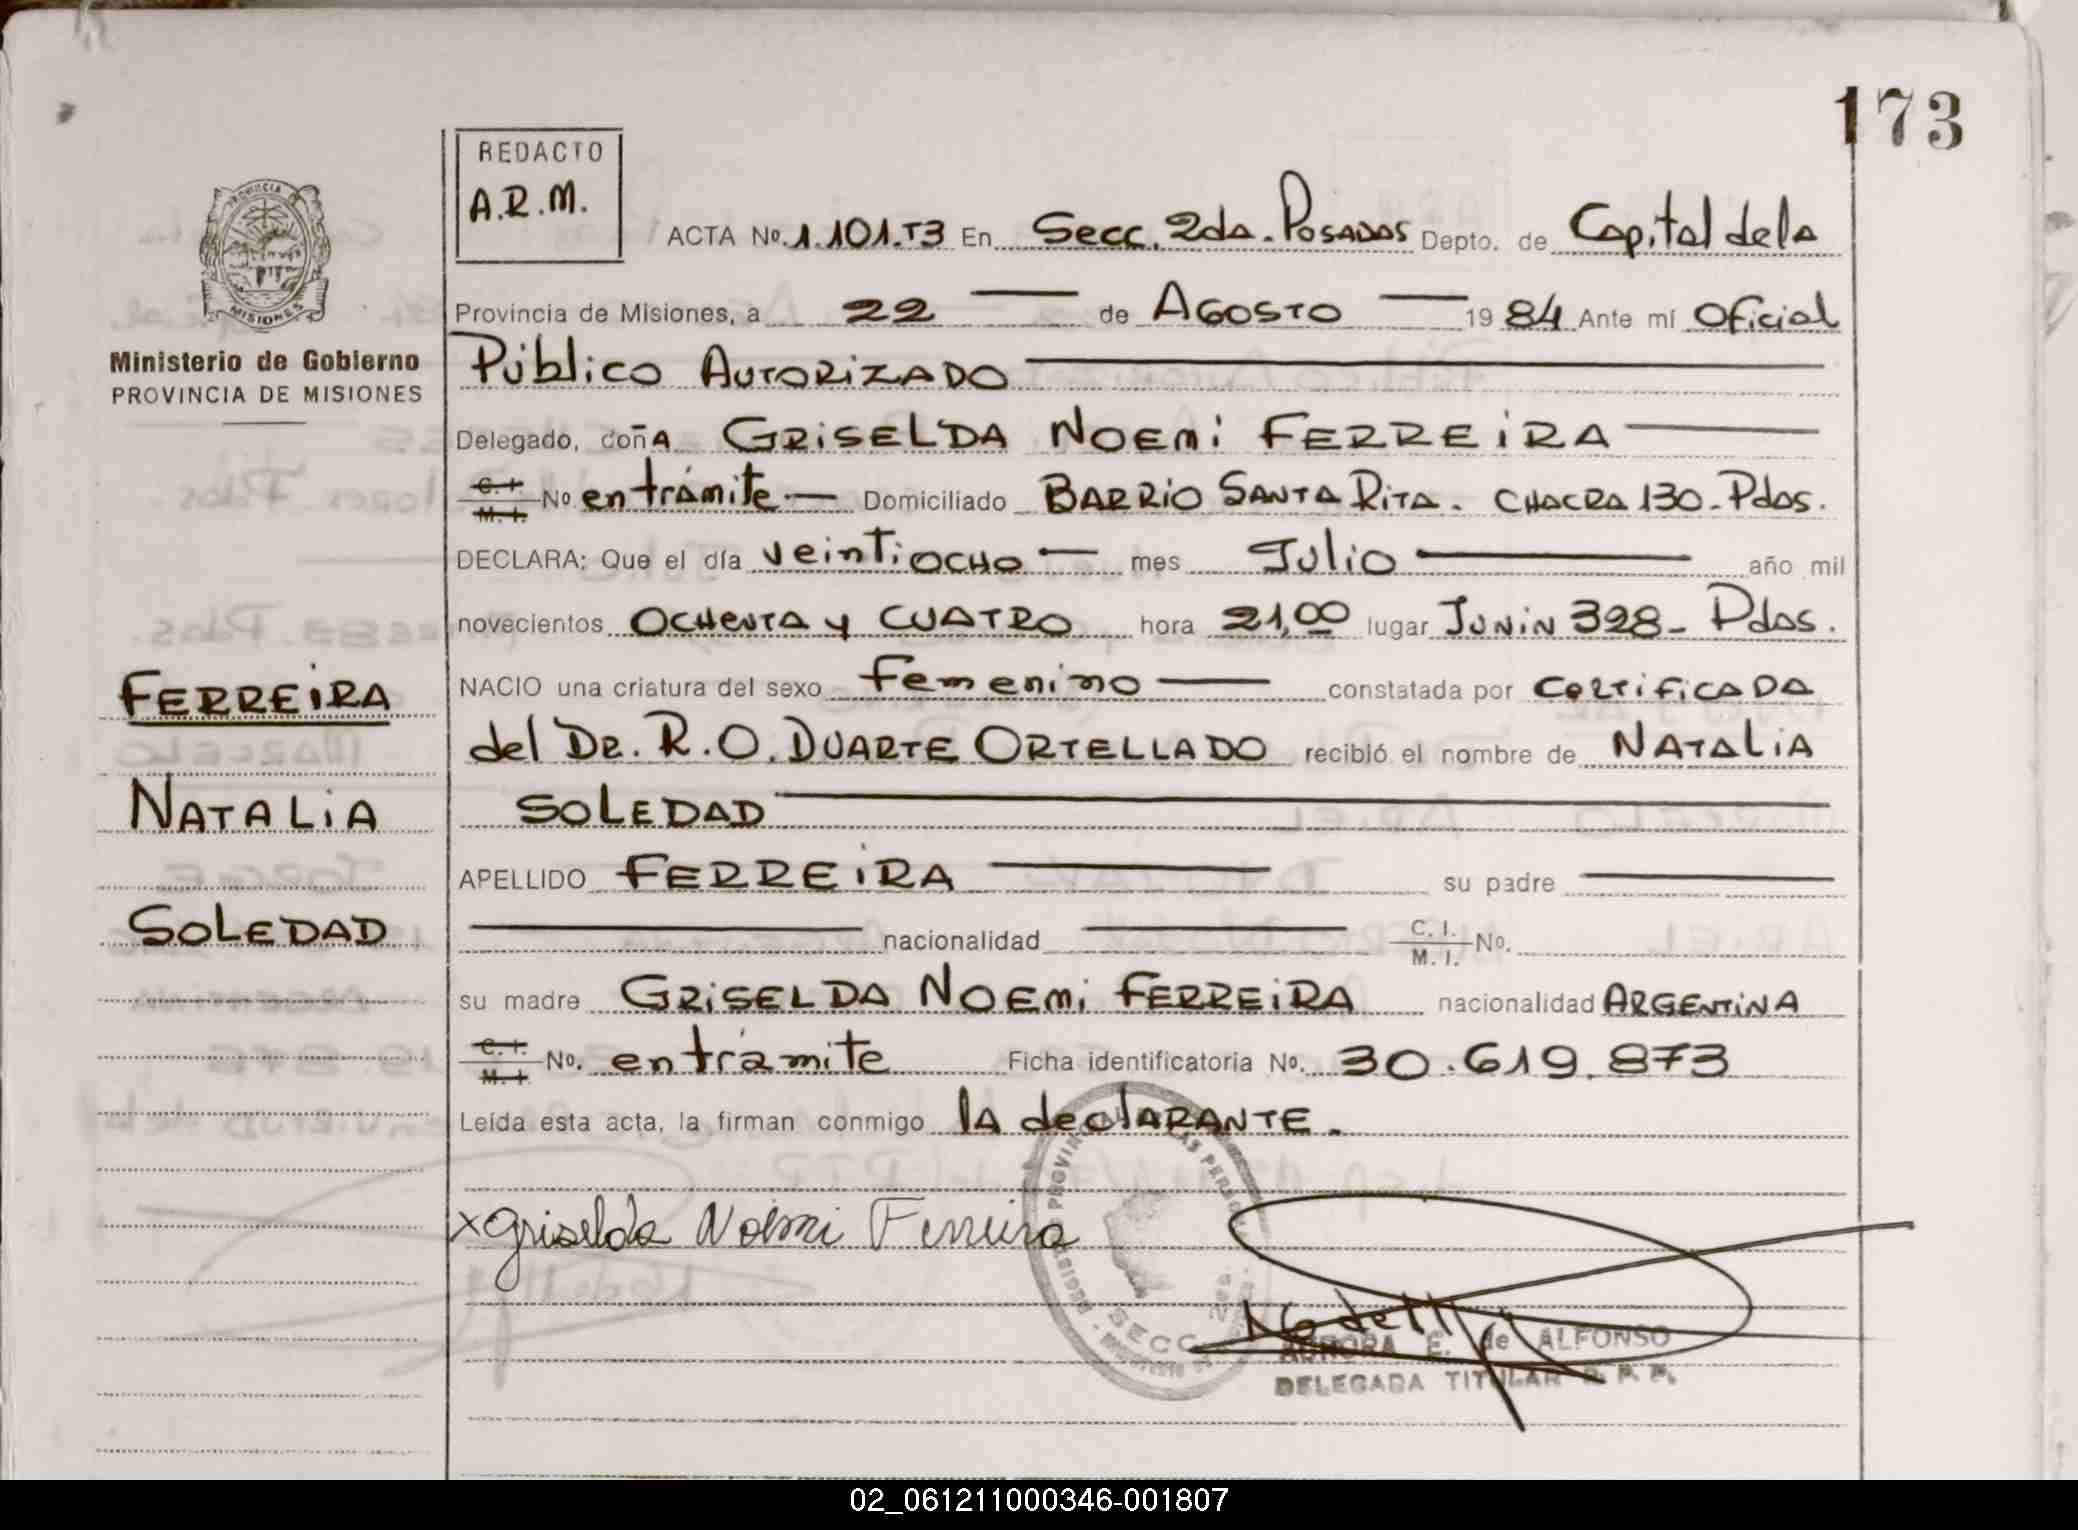 173
REDACTO
A.R.M.
ACTA Nº. 1.101.T3 En Secc. 2da. Posadas Depto. de Capital de la
Provincia de Misiones, a 22 de Agosto 1984 Ante mí Oficial
Público Autorizado
Delegado, doñA GRISELDA NOEMI FERREIRA
C. I. M. I. No. en trámite Domiciliado BARRIO SANTA RITA. CHACRA 130-Pdas.
DECLARA: Que el día veintiocho mes Julio año mil
novecientos ochenta y cuatro hora 21,00 lugar Junin 328- Pdas.
NACIO una criatura del sexo femenino constatada por certificada
del DR. R.O. DUARTE ORTELLADO recibió el nombre de NATALIA
SOLEDAD
APELLIDO FERREIRA su padre
nacionalidad C. I. M. I. No.
su madre GRISELDA NOEMI FERREIRA nacionalidad ARGENTINA
C. I. M. I. No. en trámite Ficha identificatoria No. 30.619.873
Leída esta acta, la firman conmigo la declarante.
x Griselda Noemi Ferreira
AURORA E. de ALFONSO
DELEGADA TITULAR R. P. P.
SECC. 2da.
MISIONES
Ministerio de Gobierno
PROVINCIA DE MISIONES
FERREIRA
NATALIA
SOLEDAD
02_061211000346-001807